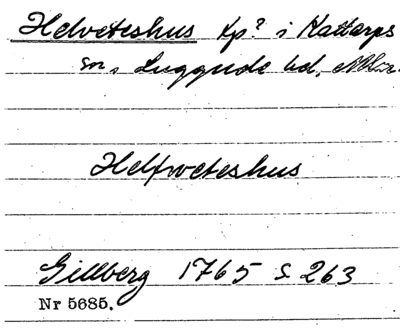 Helveteshus tp? i Kattarps
sn, Luggude hd, Mlhs.
Helfweteshus
Gillberg 1765 s 263
Nr 5685.